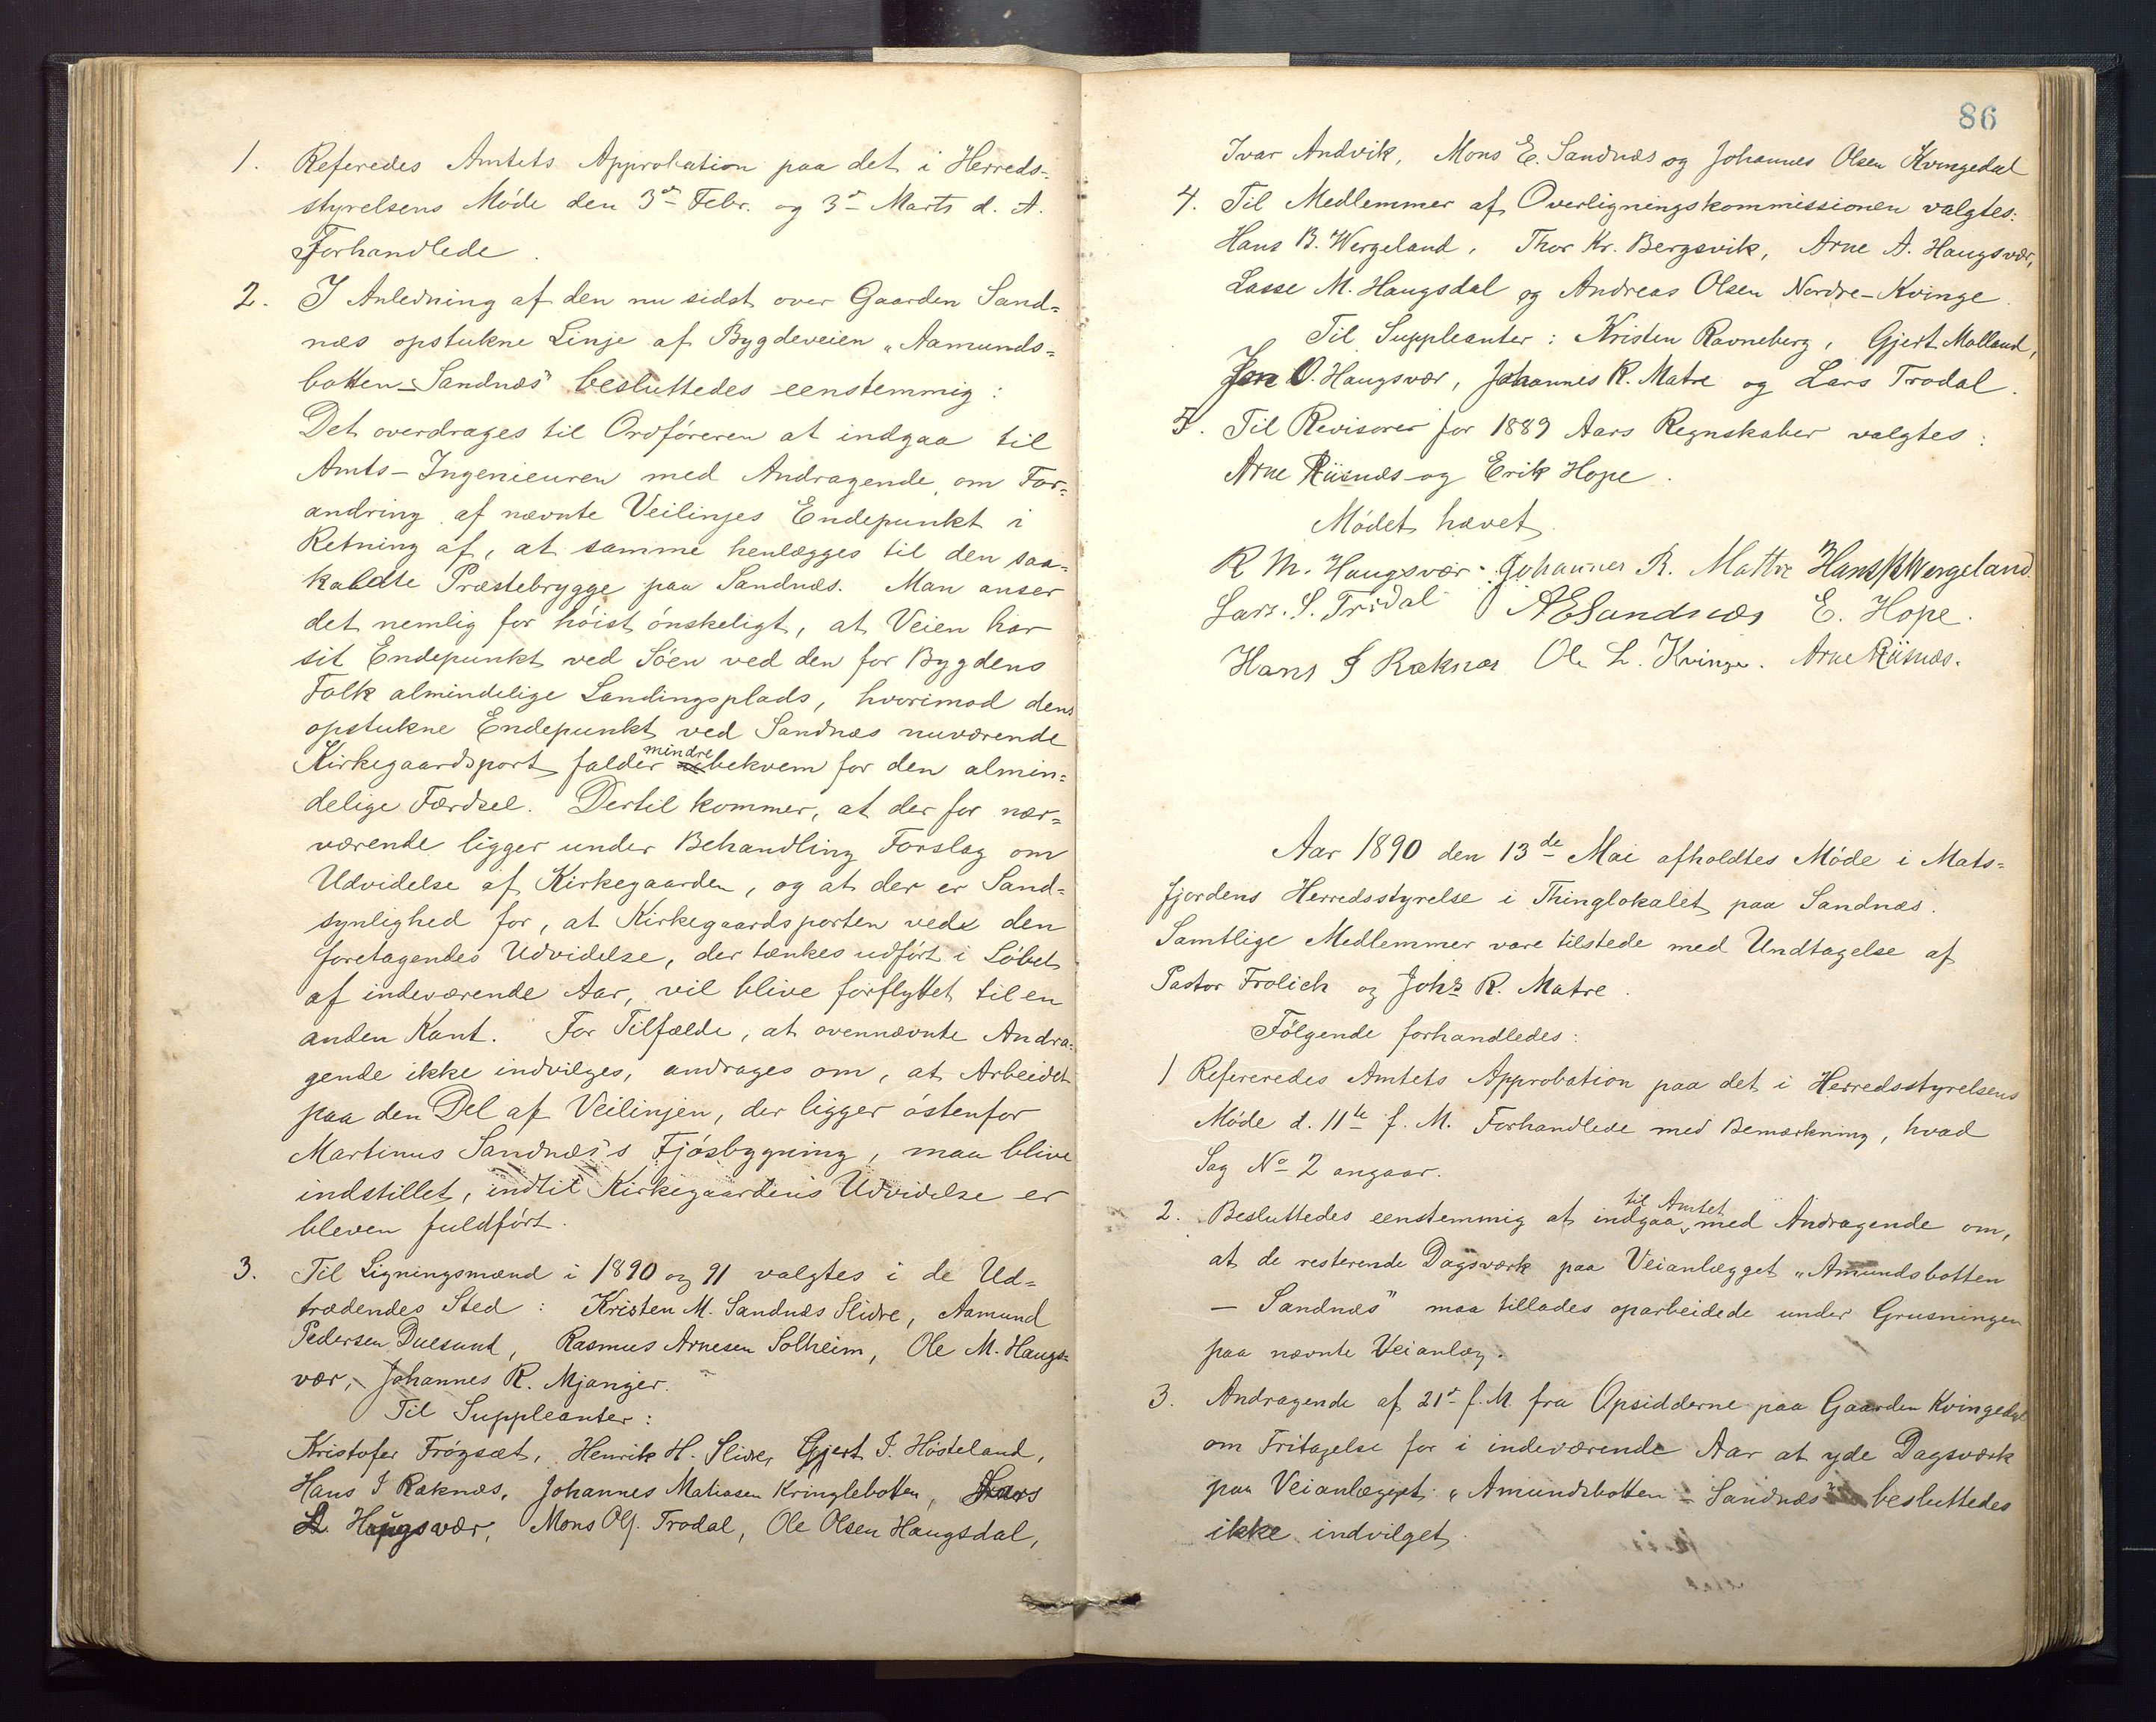 1. Referedes Amtets Approbation paa det i Herreds-
styrelsens Møde den 3die Febr. og 3die Marts d. A.
Forhandlede.
2. I Anledning af den nu sidst over Gaarden Sand-
næs opstukne Linje af Bygdeveien „Aamunds-
botten – Sandnæs" besluttedes eenstemmig:
Det overdrages til Ordføreren at indgaa til
Amts-Ingenieuren med Andragende om For-
andring af nævnte Veilinjes Endepunkt i
Retning af, at samme henlægges til den saa-
kaldte Præstebrygge paa Sandnæs. Man anser
det nemlig for høist ønskeligt, at Veien har
sit Endepunkt ved Søen ved den for Bygdens
Folk almindelige Landingsplads, hvorimod dens
opstukne Endepunkt ved Sandnæs nuværende
Kirkegaardsport falder mindre bekvem for den almin-
delige Færdsel. Dertil kommer, at der for nær-
værende ligger under Behandling Forslag om
Udvidelse af Kirkegaarden, og at der er Sand-
synlighed for, at Kirkegaardsporten ved den
foretagendes Udvidelse, der tænkes udført i Løbet
af indeværende Aar, vil blive forflyttet til en
anden Kant. For Tilfælde, at ovennævnte Andra-
gende ikke indvilges, andrages om, at Arbeidet
paa den Del af Veilinjen, der ligger østenfor
Martinus Sandnæs's Fjøsbygning, maa blive
indstillet, indtil Kirkegaardens Udvidelse er
bleven fuldført.
3. Til Ligningsmænd i 1890 og 91 valgtes i de Ud-
trædendes Sted: Kristen M. Sandnæs Slidre, Aamund
Pedersen Duesund, Rasmus Arnesen Solheim, Ole M. Haugs-
vær, Johannes R. Mjanger.
Til Suppleanter:
Kristofer Frøyset, Henrik H. Slidre, Gjert I. Høsteland,
Hans I Raknæs, Johannes Matiasen Kringlebotten, Lars
A. Haugsvær, Mons Olj. Trodal, Ole Olsen Haugsdal,
86
Ivar Andvik, Mons E. Sandnæs og Johannes Olsen Kvingedal
4. Til Medlemmer af Overligningskommissionen valgtes:
Hans B. Wergeland, Thor Kr. Bergsvik, Arne A. Haugsvær,
Lasse M. Haugsdal og Andreas Olsen Nordre-Kvinge.
Til Suppleanter: Kristen Ravneberg, Gjert Molland,
Jon O. Haugsvær, Johannes R. Matre og Lars Trodal.
5. Til Revisorer for 1889 Aars Regnskaber valgtes:
Arne Riisnæs og Erik Hope.
Mødet hævet.
R M. Haugsvær. Johannes R. Mattre Hans B Wergeland
Lars. S. Trodal AESandnæs E. Hope.
Hans I Raknæs Ole L. Kvinge. Arne Riisnæs.
Aar 1890 den 13de Mai afholdtes Møde i Mats-
fjordens Herredsstyrelse i Thinglokalet paa Sandnæs.
Samtlige Medlemmer vare tilstede med Undtagelse af
Pastor Frolich og Johs R. Matre.
Følgende forhandledes:
1 Refereredes Amtets Approbation paa det i Herredsstyrelsens
Møde d. 11te f. M. Forhandlede med Bemærkning, hvad
Sag No 2 angaar.
2. Besluttedes eenstemmig at indgaa til Amtet med Andragende om,
at de resterende Dagsværk paa Veianlægget „Amundsbotten
– Sandnæs" maa tillades oparbeidede under Grusningen
paa nævnte Veianlæg.
3. Andragende af 21de f. M. fra Opsidderne paa Gaarden Kvingedal
om Fritagelse for i indeværende Aar at yde Dagsværk
paa Veianlægget „Amundsbotten – Sandnæs" besluttedes
ikke indvilget.